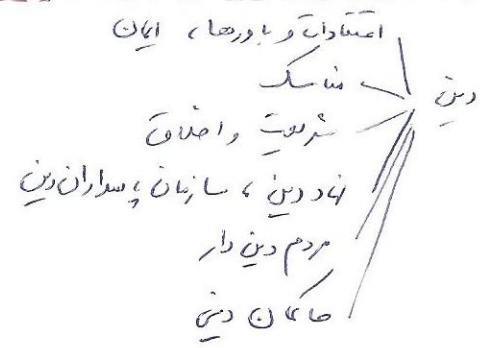 اعتقادات و باورها، ایمان
مناسک
دین
شریعت و اخلاق
نهاد دین، سازمان پاسداران دین
مردم دین دار
حاکمان دینی